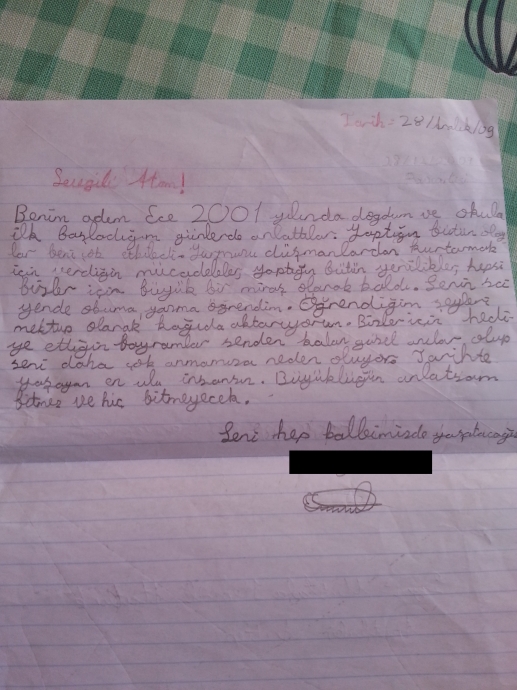 Tarih: 28/Aralık/09
Sevgili Atam!
Benim adım Ece 2001 yılında doğdum ve okula
ilk başladığım günlerde anlattılar. Yaptığın bütün olay
lar beni çok etkiledi. Yurmunu düşmanlardan kurtarmak
için verdiğin mücadeleler, yaptığın bütün yenilikler, hepsi
bizler için büyük bir miras olarak kaldı. Senin sa
yende okuma, yazma öğrendim. Öğrendiğim şeyleri
mektup olarak kağıda aktarıyorum. Bizler için hedi-
ye ettiğin bayramlar senden kalan güzel anılar olup
seni daha çok anmamıza neden oluyor. Tarihte
yaşayan en ulu insansın. Büyüklüğün anlatsam
bitmez ve hiç bitmeyecek.
Seni hep kalbimizde yaşatacağız